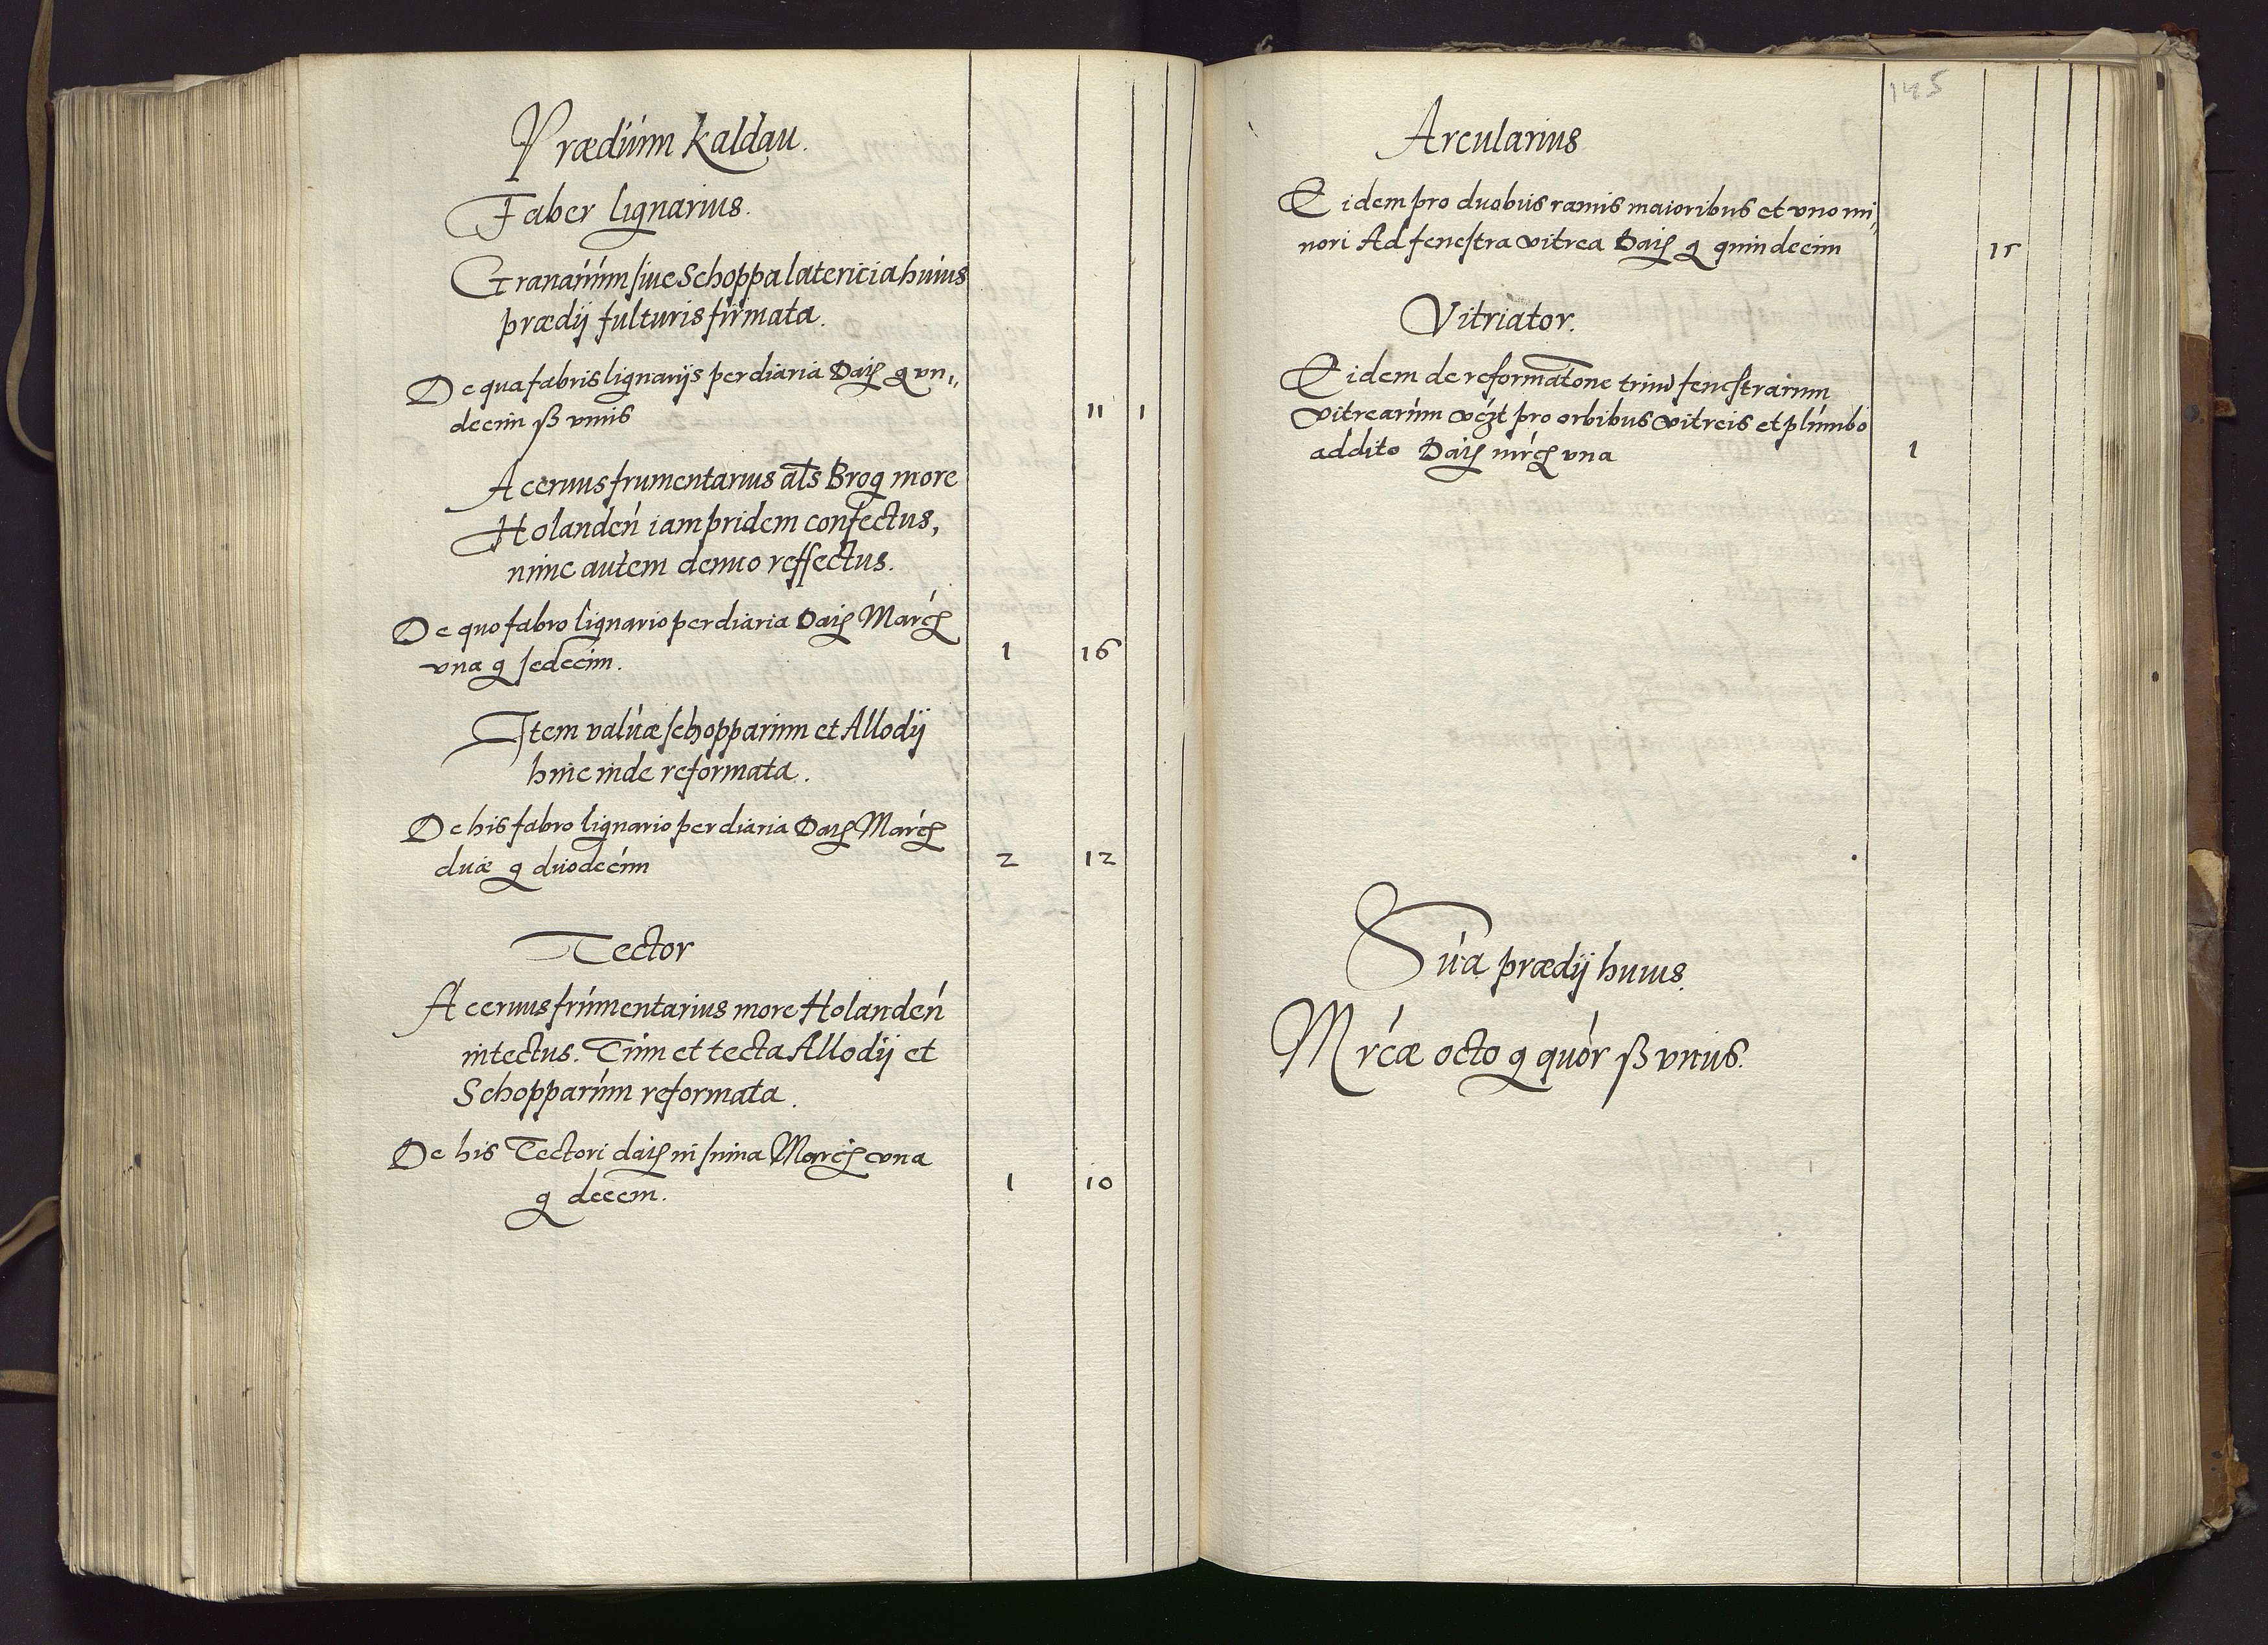 Prædium Kaldau.
Faber lignarius.
Granarium siue Schoppa latericia huius
prædij fulturis firmata.
De qua fabris lignarijs per diaria Da͠ꝭ g vn„
decim ß vnus 11 1
Aceruus frumentarius al͠s Brog more
Holandeń iam pridem confectus,
nunc autem denuo reffectus.
De quo fabro lignario per diaria Daꝭ Marcꝭ
vna g sedecim. 1 16
Item valuæ schopparum et Allodij
hinc inde reformata.
De his fabro lignario per diaria Daꝭ Marcꝭ
duæ g duodecim 2 12
Tector
Aceruus frumentarius more Holandeń
intectus. Tum et tecta Allodij et
Schopparum reformata.
De his Tectori daꝭ in summa Marcꝭ vna
g decem. 1 10
145
Arcularius
Eidem pro duobus ramis maioribus et vno mi„
nori Ad fenestra vitrea Daꝭ g quindecim 15
Vitriator.
Eidem de reformatone trium fenestrarum
vitrearum vczt pro orbibus vitreis et plumbo
addito Daꝭ mrcꝭ vna 1
Sua prædij huius.
Mrcæ octo g quor ß vnus.